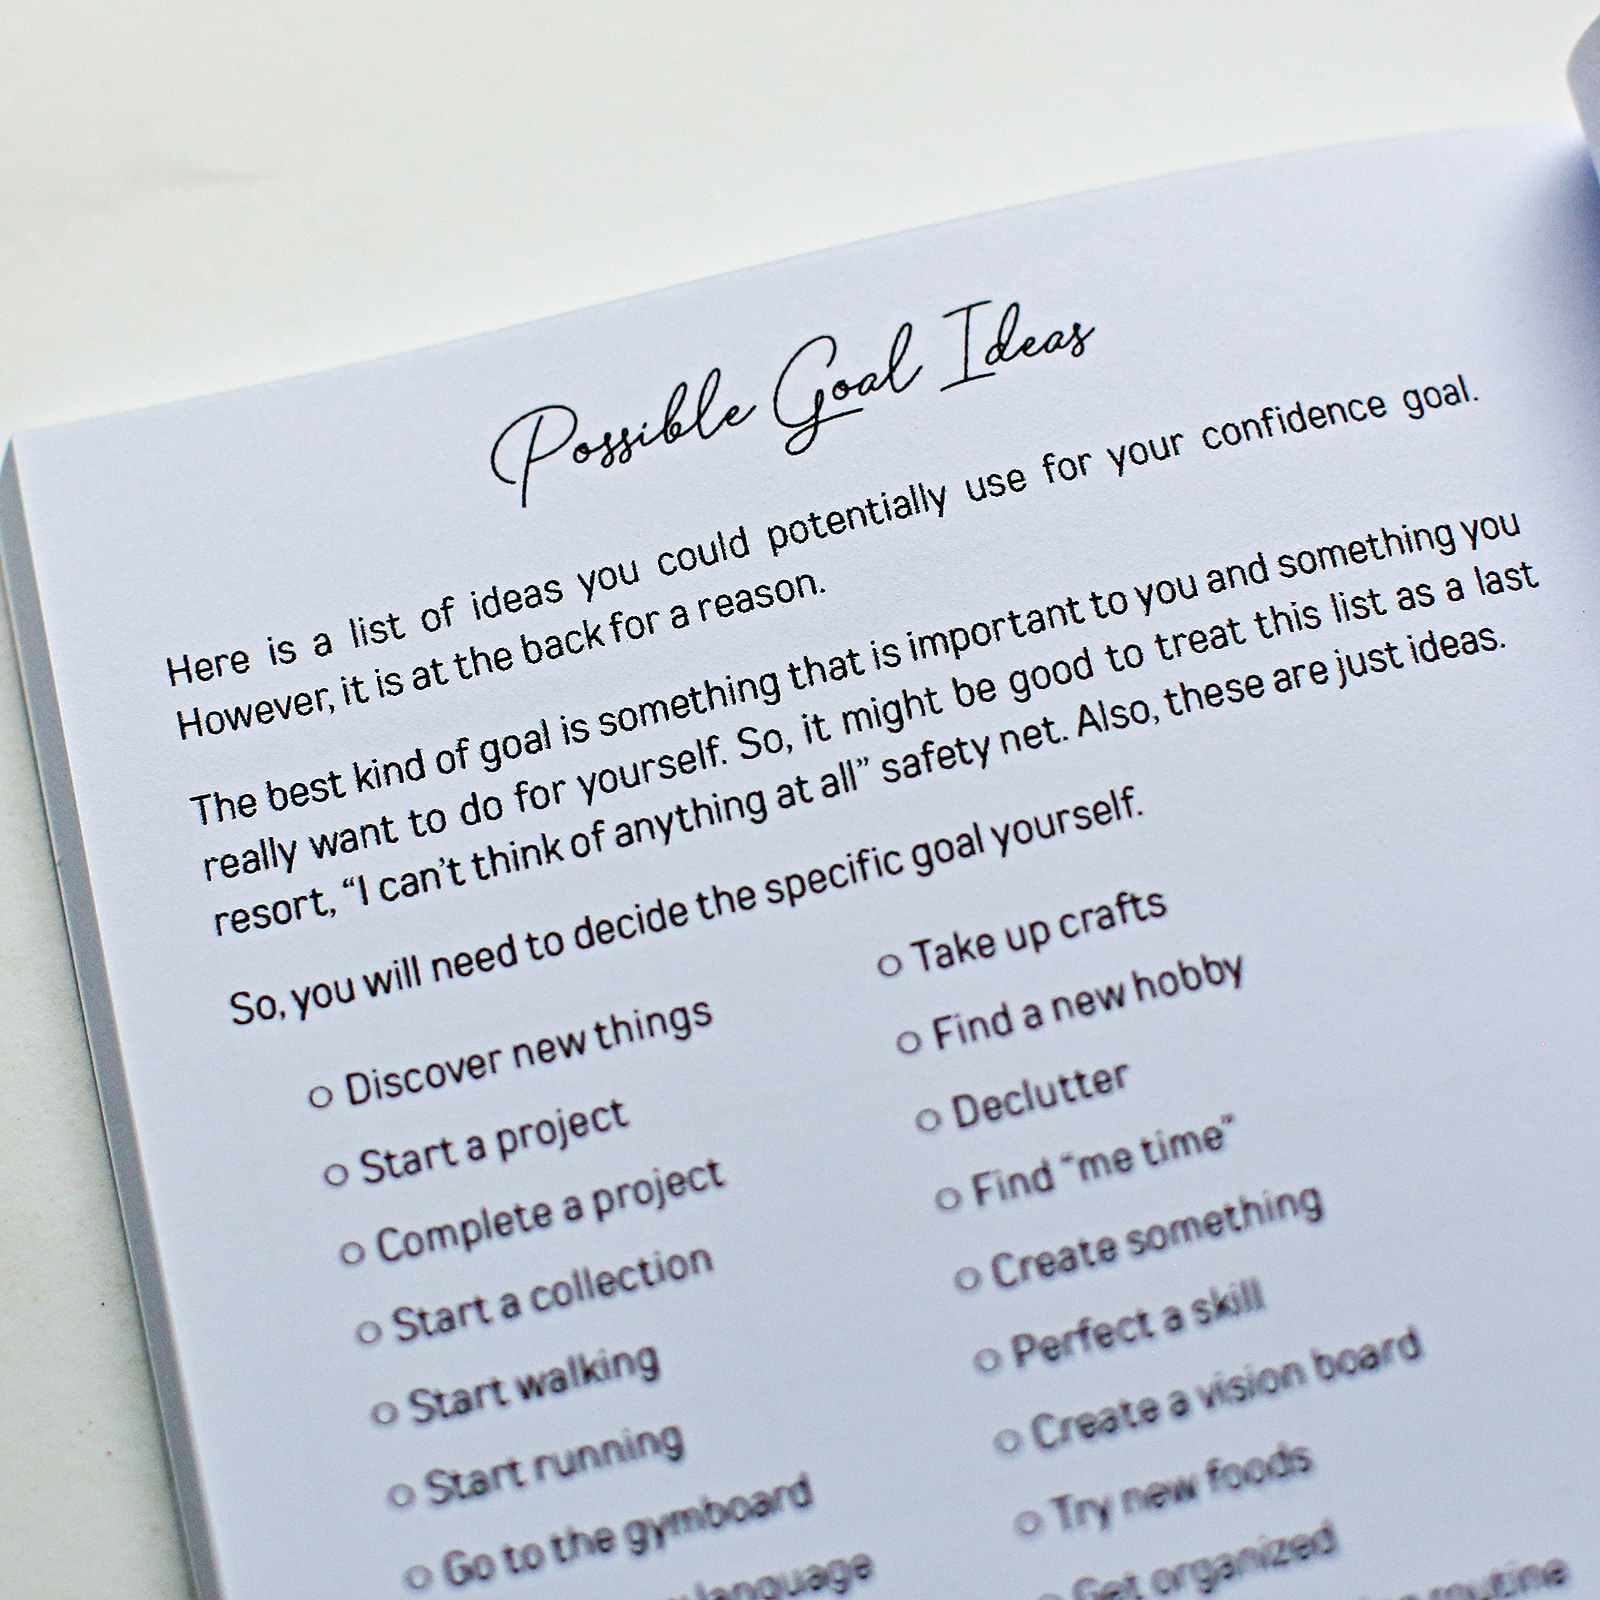 Possible Goal Ideas
Here is a list of ideas you could potentially use for your confidence goal.
However, it is at the back for a reason.
The best kind of goal is something that is important to you and something you
really want to do for yourself. So, it might be good to treat this list as a last
resort, “I can’t think of anything at all” safety net. Also, these are just ideas.
So, you will need to decide the specific goal yourself.
Discover new things
Start a project
Complete a project
Start a collection
Start walking
Start running
Go to the gymboard
language
Take up crafts
Find a new hobby
Declutter
Find “me time”
Create something
Perfect a skill
Create a vision board
Try new foods
Get organized
routine